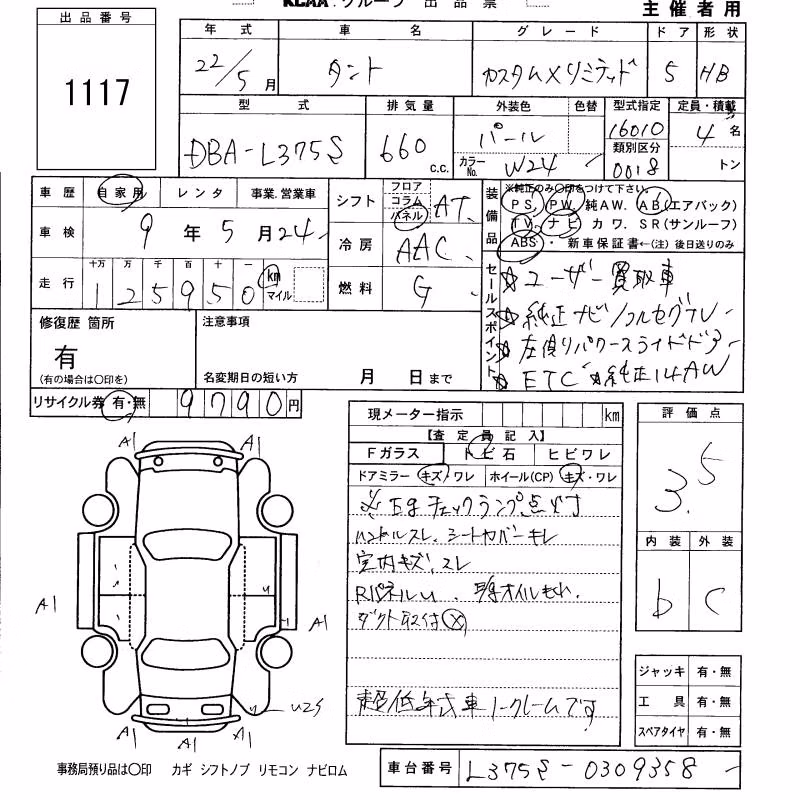 KCAA.グループ 出品票
主催者用
出品番号
1117
年式 車名 グレード ドア 形状
22/5月 タント カスタムXリミテッド 5 HB
型式 排気量 外装色 色替 型式指定 定員・積載
DBA-L375S 660 c.c. パール 16010 4名
カラーNo. W24 類別区分 0018 トン
車歴 自家用 レンタ 事業.営業車
車検 9年5月24
走行 十万 万 千 百 十 一 km マイル
125950
シフト フロア コラム パネル AT
冷房 AAC
燃料 G
装備品 ※純正のみ〇印をつけて下さい。
PS. PW. 純AW. AB(エアバック)
TV. ナビ カワ. SR(サンルーフ)
ABS・新車保証書←(注)後日送りのみ
セールスポイント
☆ユーザー買取車
☆純正ナビ/フルセグTV
☆左側パワースライドドア
☆ETC ☆純正14AW
修復歴 箇所
有
(有の場合は〇印を)
注意事項
名変期日の短い方 月 日まで
リサイクル券 有・無 9790円
現メーター指示 km
【査定員記入】
Fガラス トビ石 ヒビワレ
ドアミラー キズ・ワレ ホイール(CP) キズ・ワレ
※Egチェックランプ点灯
ハンドルスレ、シートカバーキレ
室内キズ、スレ
RパネルU.
オイルもれ.
ダクト取付(X)
超低年式車ノークレームです
評価点
3.5
内装 外装
b C
ジャッキ 有・無
工具 有・無
スペアタイヤ 有・無
A1 A1
A1 A1
U U
U25
A1 A1 A1
事務局預り品は〇印 カギ シフトノブ リモコン ナビロム
車台番号 L375S-0309358